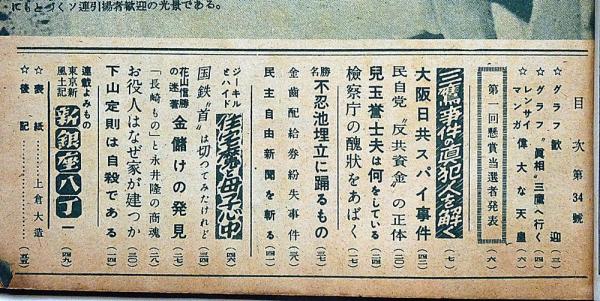 にもとづくソ連引揚者歓迎の光景である。
目次 第34號
☆グラフ 歓迎 (三)
☆グラフ "眞相"三鷹へ行く (四)
☆レンサイマンガ 偉大な天皇 (六)
第一回懸賞当選者発表 (六)
三鷹事件の真犯人を解く (七)
大阪日共スパイ事件 (四)
民自党"反共資金"の正体 (二〇)
兒玉誉士夫は何をしている
検察庁の醜状をあばく (一七)
勝名 不忍池埋立に踊るもの (五〇)
金歯配給券紛失事件 (三八)
民主自由新聞を斬る (四一)
ジーキルとハイド 住宅難と母子心中 (四六)
国鉄"首"は切ってみたけれど (三四)
花山信勝の迷著 金儲けの発見 (二七)
「長崎もの」と永井隆の商魂 (三八)
お役人はなぜ家が建つか (三〇)
下山定則は自殺である (四四)
連載よみもの 東京新風土記 新銀座八丁 (四九)
☆表紙 上倉大造
☆後記 (五五)